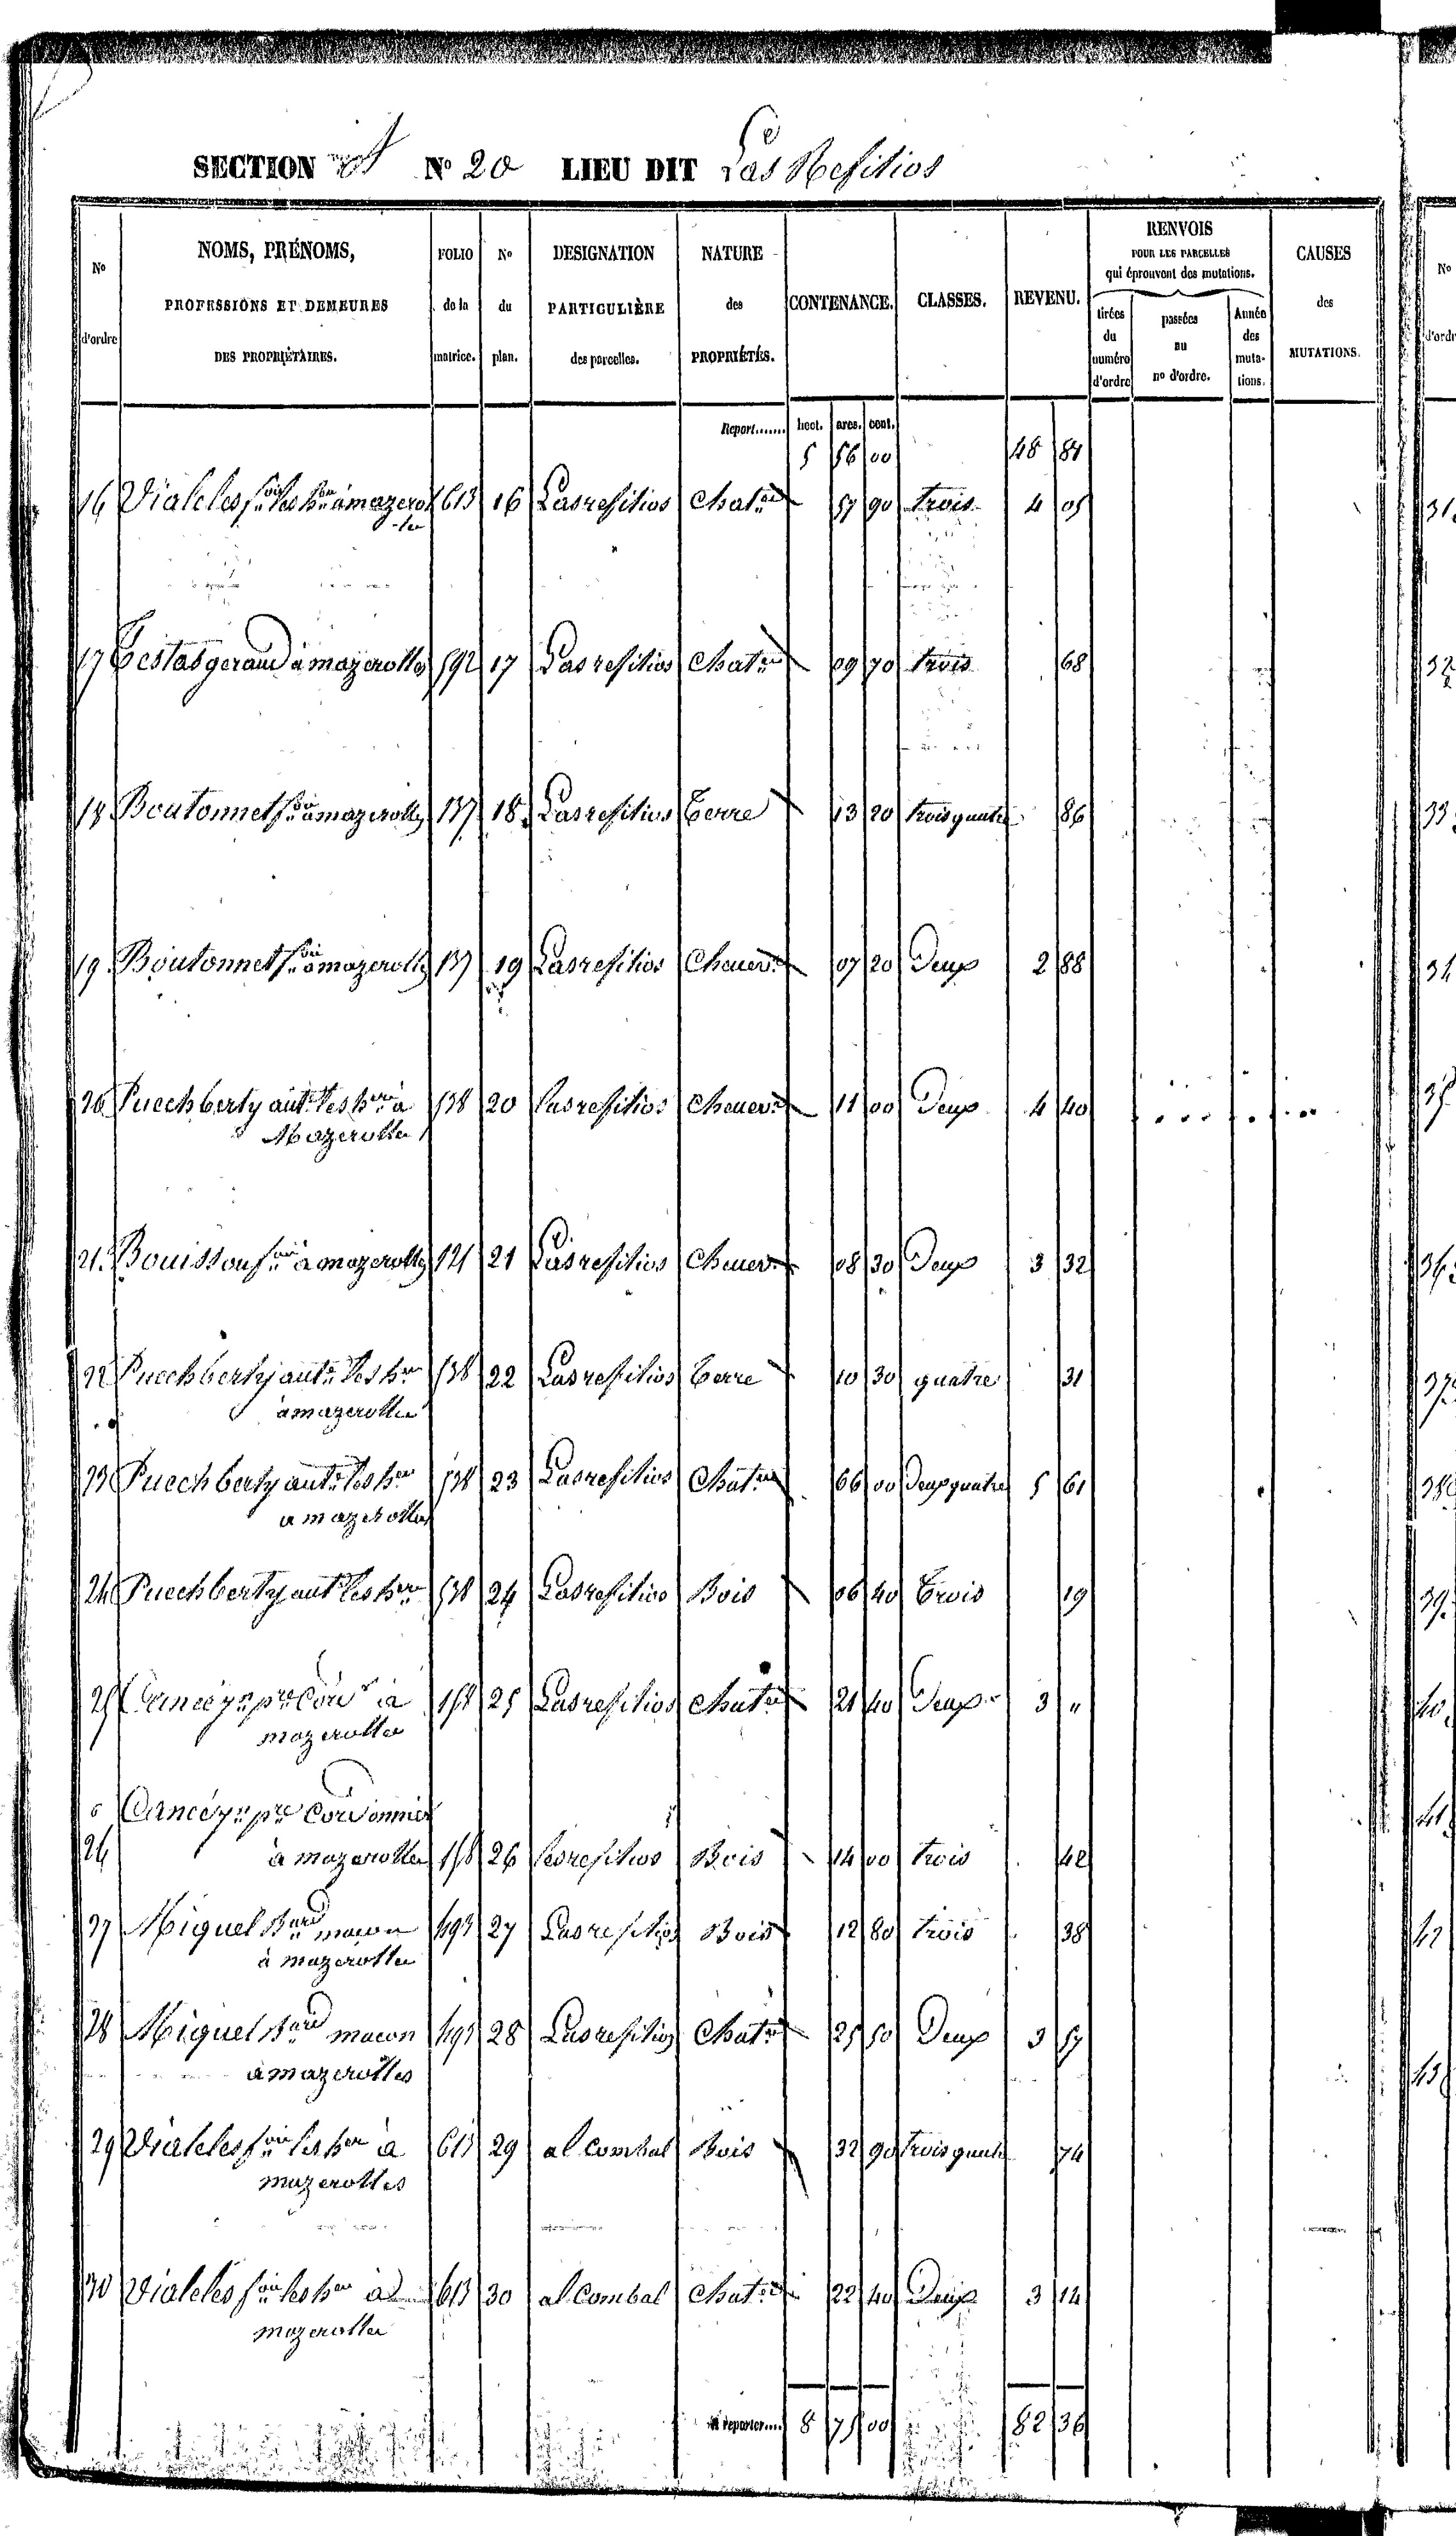 SECTION A N° 20 LIEU DIT Las Resilios
N° d'ordre
NOMS, PRÉNOMS, PROFESSIONS ET DEMEURES DES PROPRIÉTAIRES.
FOLIO de la matrice.
N° du plan.
DESIGNATION PARTICULIÈRE des parcelles.
NATURE des PROPRIÉTÉS.
CONTENANCE.
CLASSES.
REVENU.
RENVOIS POUR LES PARCELLES qui éprouvent des mutations.
tirées du numéro d'ordre
passées au n° d'ordre.
Année des mutations.
CAUSES des MUTATIONS.
Report....... hect. ares. cent.
5 56 00 48 84
16 Vialeles les à mazerol 613 16 Las resilios Chat 57 90 trois 4 05
-les
17 Testas geraud à mazerolles 592 17 Las resilios Chat 09 70 trois 68
18 Boutonnet à mazerolles 137 18 Las resilios Terre 13 20 trois quatre 86
19 Boutonnet à mazerolles 137 19 Las resilios Chenev 07 20 Deux 2 88
20 Puechberty ant les h à 538 20 las resilios Chenev 11 00 Deux 4 40
Mazerolles
21 Bouissou à mazerolles 121 21 Las resilios Chenev 08 30 Deux 3 32
22 Puechberty ant les h 538 22 Las resilios Terre 10 30 quatre 31
à mazerolles
23 Puechberty ant les h 538 23 Las resilios Chat 66 00 Deux quatre 5 61
a mazerolles
24 Puechberty ant les h 538 24 Las resilios Bois 06 40 Trois 19
25 Cancé pre Cor à 158 25 Las resilios Chat 21 40 Deux 3 "
mazerolles
Cancé pre Cordonnier
26 à mazerolles 158 26 las resilios Bois 14 00 trois 42
27 Miquel macon 493 27 Las resilios Bois 12 80 trois 38
à mazerolles
28 Miquel macon 493 28 Las resilios Chat 25 50 Deux 3 57
à mazerolles
29 Vialeles les h à 613 29 al Combal Bois 32 90 trois quatre 74
mazerolles
30 Vialeles les h à 613 30 al Combal Chat 22 40 Deux 3 14
mazerolles
A reporter.... 8 75 00 82 36